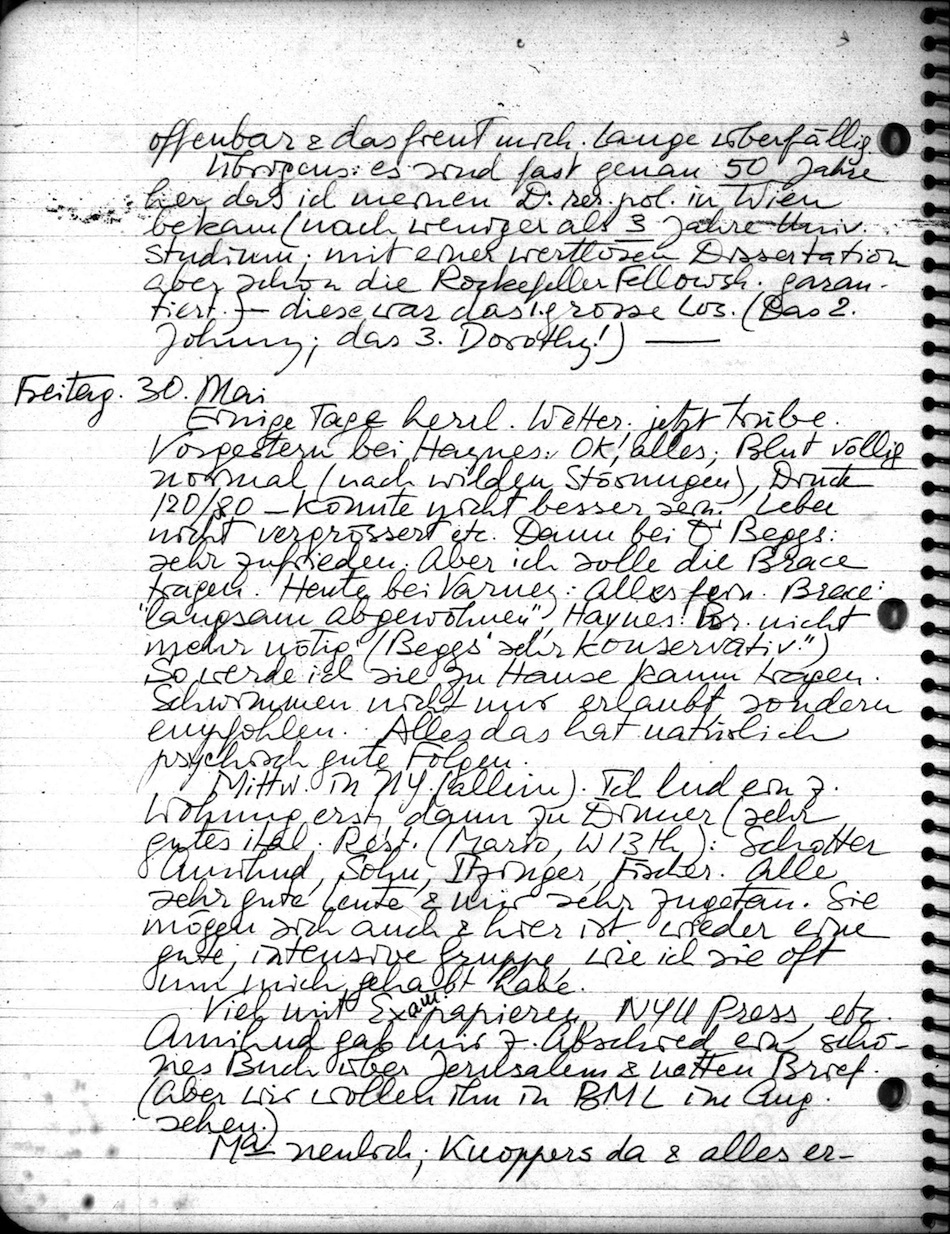 offenbar & das freut mich. Lange überfällig.
Übrigens: es sind fast genau 50 Jahre
her, daß ich meinen D. rer. pol. in Wien
bekam (nach weniger als 3 Jahre Univ.
Studium, mit einer wertlosen Dissertation
aber schon die Rockefeller Fellowsh. garan-
tiert.) – diese war das 1. grosse Los. (Das 2.
Johnny; das 3. Dorothy!) —
Freitag. 30. Mai
Einige Tage herrl. Wetter. jetzt trübe.
Vorgestern bei Haynes: OK, alles; Blut völlig
normal (nach wilden Störungen), Druck
120/80 – könnte nicht besser sein. Leber
nicht vergrössert etc. Dann bei Beggs:
sehr zufrieden. Aber ich solle die Brace
tragen. Heute bei Varney: Alles fein. Brace:
"langsam abgewöhnen", Haynes: Br. nicht
mehr nötig (Beggs "sehr konservativ.")
So werde ich sie zu Hause kaum tragen.
Schwimmen nicht nur erlaubt sondern
empfohlen. Alles das hat natürlich
psychisch gute Folgen.
Mittw. in NY. (allein). Ich lud ein z.
Wohnung erst, dann zu Dinner (sehr
gutes ital. Rest. (Mario, W 13th): Schotter
Amihud, Sohn, Itzinger, Fischer. Alle
sehr gute Leute & mir sehr zugetan. Sie
mögen sich auch & hier ist wieder eine
gute, intensive Gruppe, wie ich sie oft
um mich gehabt habe.
Viel mit Exam papieren, NYU Press, etc.
Amihud gab mir z. Abschied ein schö-
nes Buch über Jerusalem & netten Brief.
(Aber wir wollen ihn in BML im Aug.
sehen.)
neulich; Knoppers da & alles er-